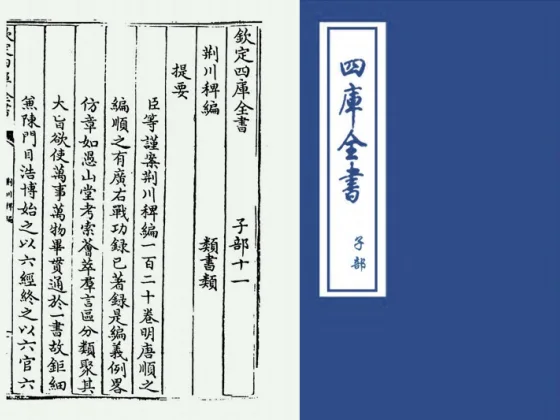 欽定四庫全書 子部十一
荆川稗編 類書類
提要
臣等謹案荆川稗編一百二十卷明唐順之
編順之有廣右戰功録已著録是編義例畧
仿章如愚山堂考索薈萃羣言區分類聚其
大旨欲使萬事萬物畢貫通於一書故鉅細
兼陳門目浩博始之以六經終之以六官六
荆川稗編
四庫全書
子部